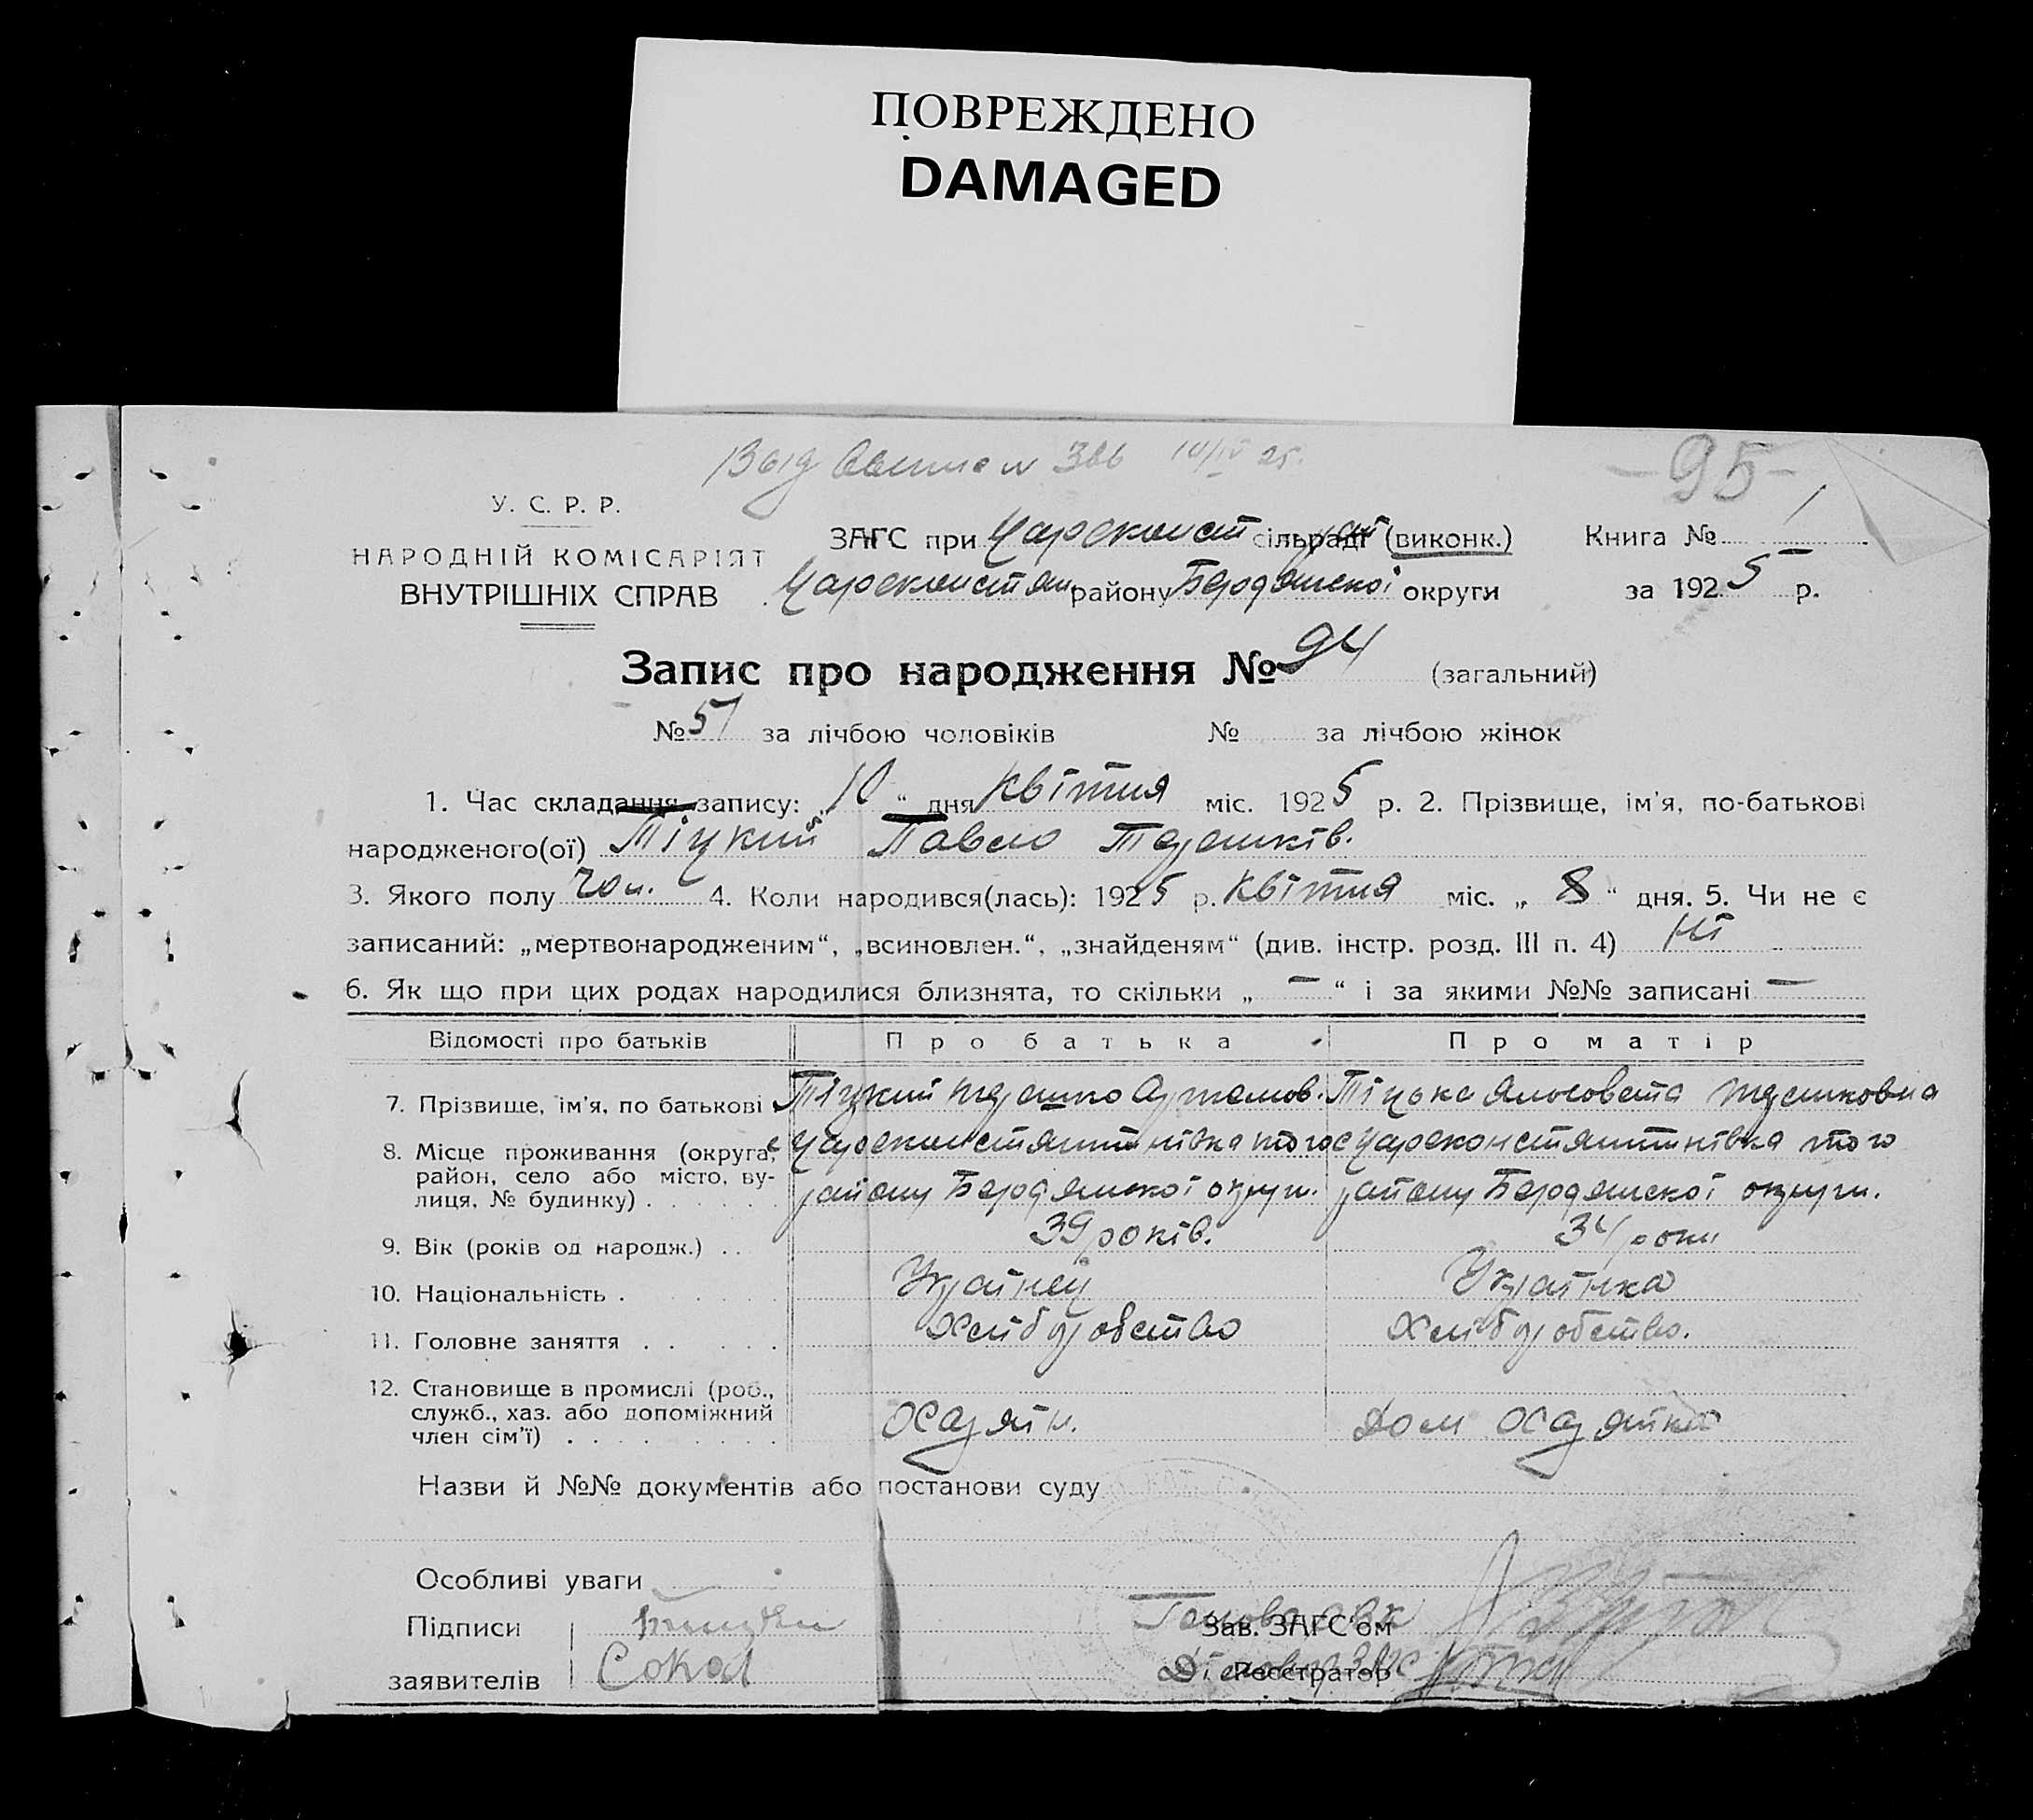 ПОВРЕЖДЕНО
DAMAGED
366 10/IV 25.
-95-
У. С. Р. Р.
НАРОДНІЙ КОМІСАРІЯТ
ВНУТРІШНІХ СПРАВ
ЗАГС при Цареконст сільраді (виконк.)
Книга № 1
Цареконстян району Бердянської округи
за 1925 р.
Запис про народження № 94 (загальний)
№ 51 за лічбою чоловіків № за лічбою жінок
1. Час складання запису: 10 “ дня Квітня міс. 1925 р. 2. Прізвище, ім’я, по-батькові
народженого(ої) Тіцкий Павло
3. Якого полу чол. 4. Коли народився(лась): 1925 р. Квітня міс. „ 8 “ дня. 5. Чи не є
записаний: „мертвонародженим“, „всиновлен.“, „знайденям“ (див. інстр. розд. III п. 4) Ні
6. Як що при цих родах народилися близнята, то скільки „ — “ і за якими №№ записані —
Відомості про батьків Про батька Про матір
7. Прізвище, ім’я, по батькові Тіцкий Тіцька
8. Місце проживання (округа, район, село або місто, вулиця, № будинку) . . . . . .
с Цареконстянтинівка того району Бердянської округи.
с Цареконстянтинівка того району Бердянської округи.
9. Вік (років од народж.) . . 39 років. 34 роки
10. Національність . . . . . . Українец Українка
11. Головне заняття . . . . . Хліборобство Хліборобство.
12. Становище в промислі (роб., служб., хаз. або допоміжний член сім’ї) . . . . . . . .
Хазяїн. Дом Хазяйка
Назви й №№ документів або постанови суду
Особливі уваги
Підписи
Зав. ЗАГС’ом
заявителів Сокол
Реєстратор